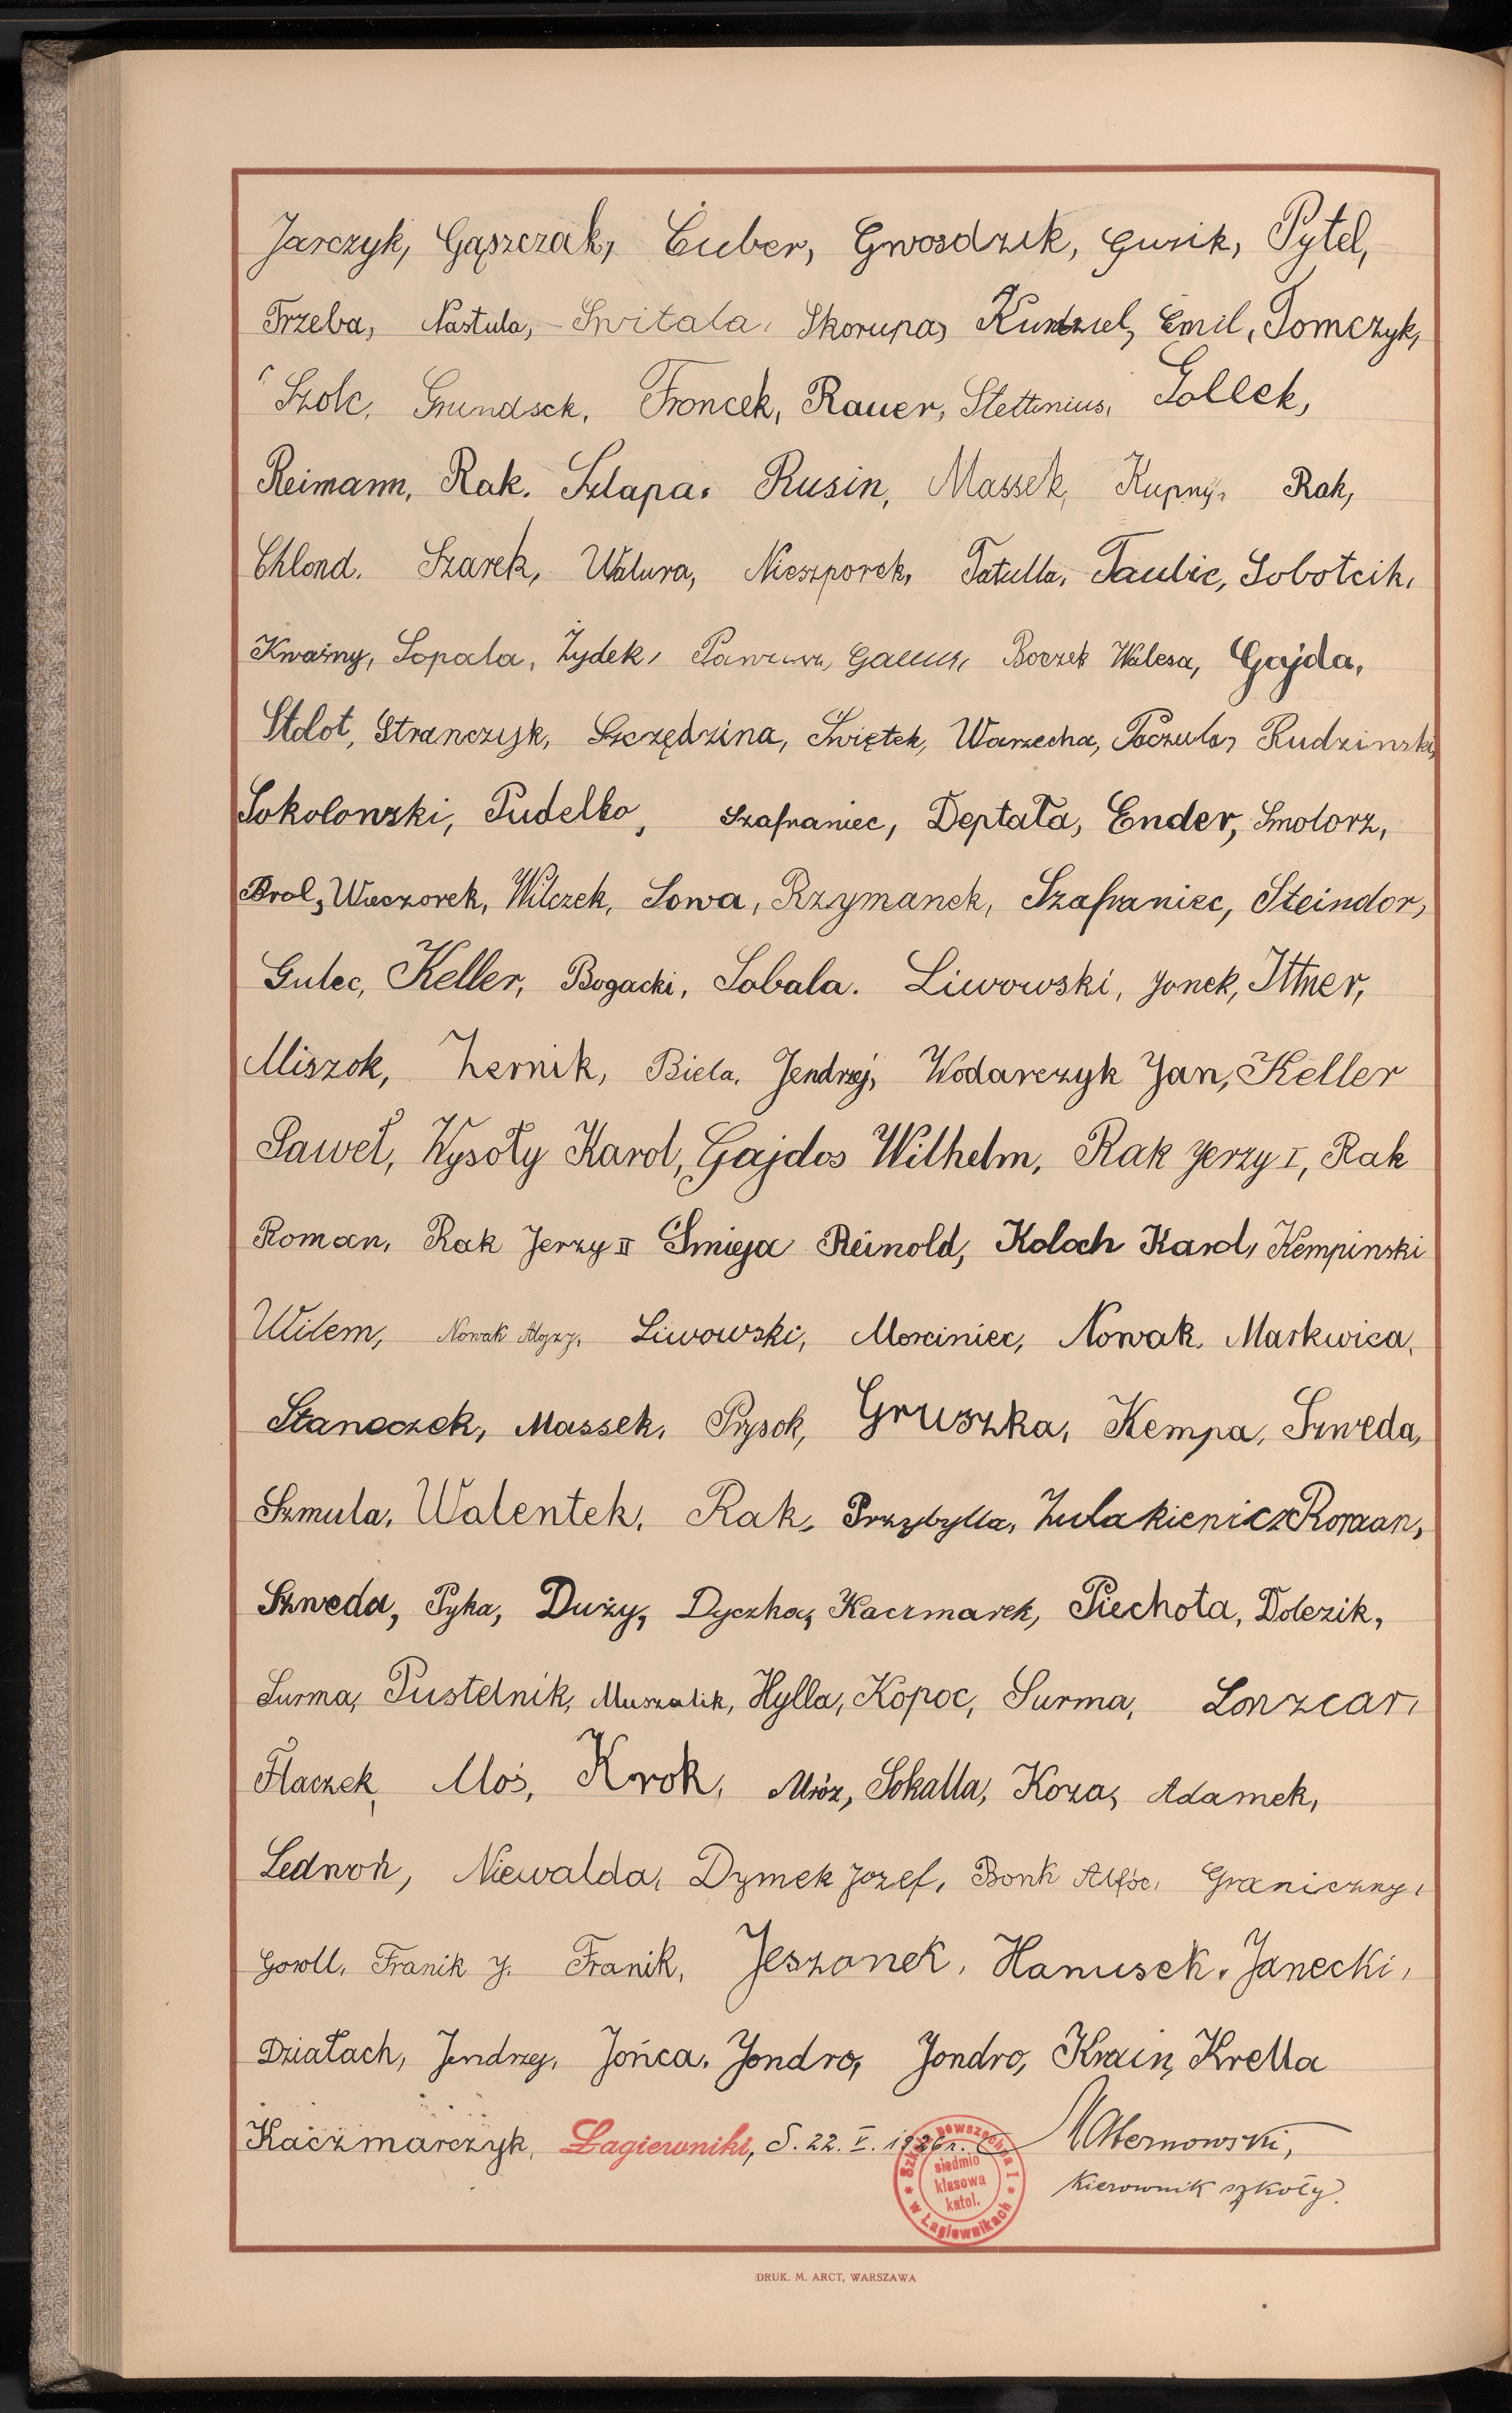 Jarczyk, Gąszczak, Cuber, Gwosdzik, Gusik, Pytel,
Trzeba, Nastula, Switala, Skorupa, Kundziel, Emil, Tomczyk,
Szolc, Grundsek, Froncek, Rauer, Stettinius, Gollek,
Reimann, Rak. Szlapa. Rusin, Massek, Kupny, Rak,
Chlond. Szarek, Walura, Nieszporek, Tatulla, Taubic, Sobotcik,
Kwaśny, Sopala, Żydek, Boczek Walesa, Gajda,
Stolot, Stranczyk, Szczędzina, Świętek, Warzecha, Poczula, Rudzinski,
Sokolowski, Pudelko, Szafraniec, Deptała, Ender, Smolorz,
Brol, Wieczorek, Wilczek, Sowa, Rzymanek, Szafraniec, Steindor,
Gulec, Keller, Bogacki, Sobala. Liwowski, Jonek, Ittner,
Miszok, Żernik, Biela, Jendrzej, Wodarczyk Jan, Keller
Paweł, Wysoły Karol, Gajdos Wilhelm, Rak Jerzy I, Rak
Roman, Rak Jerzy II Śmieja Reinold, Koloch Karol, Kempinski
Wilem, Nowak Alojzy, Liwowski, Morciniec, Nowak. Markwica,
Staneczek, Massek, Prysok, Gruszka, Kempa, Szweda,
Szmula, Walentek, Rak, Przybylla, Żulakienicz Roman,
Szweda, Pyka, Duży, Dyczka, Kaczmarek, Piechota, Dolezik,
Surma, Pustelnik, Muszalik, Hylla, Kopoc, Surma, Lonzcar,
Flaczek, Moś, Krok, Mróz, Sokalla, Koza, Adamek,
Ledwoń, Niewalda, Dymek Jozef, Bonk Graniczny,
Goroll, Franik J. Franik, Jeszonek, Hanusek, Janecki,
Działach, Jendrzej, Jońca, Jondro, Jondro, Krain, Krella
Kaczmarczyk, Łagiewniki, d. 22. V. 1926 r.
Kierownik szkoły.
Szkoła powszechna I
siedmio
klasowa
katol.
w Łagiewnikach
DRUK. M. ARCT, WARSZAWA